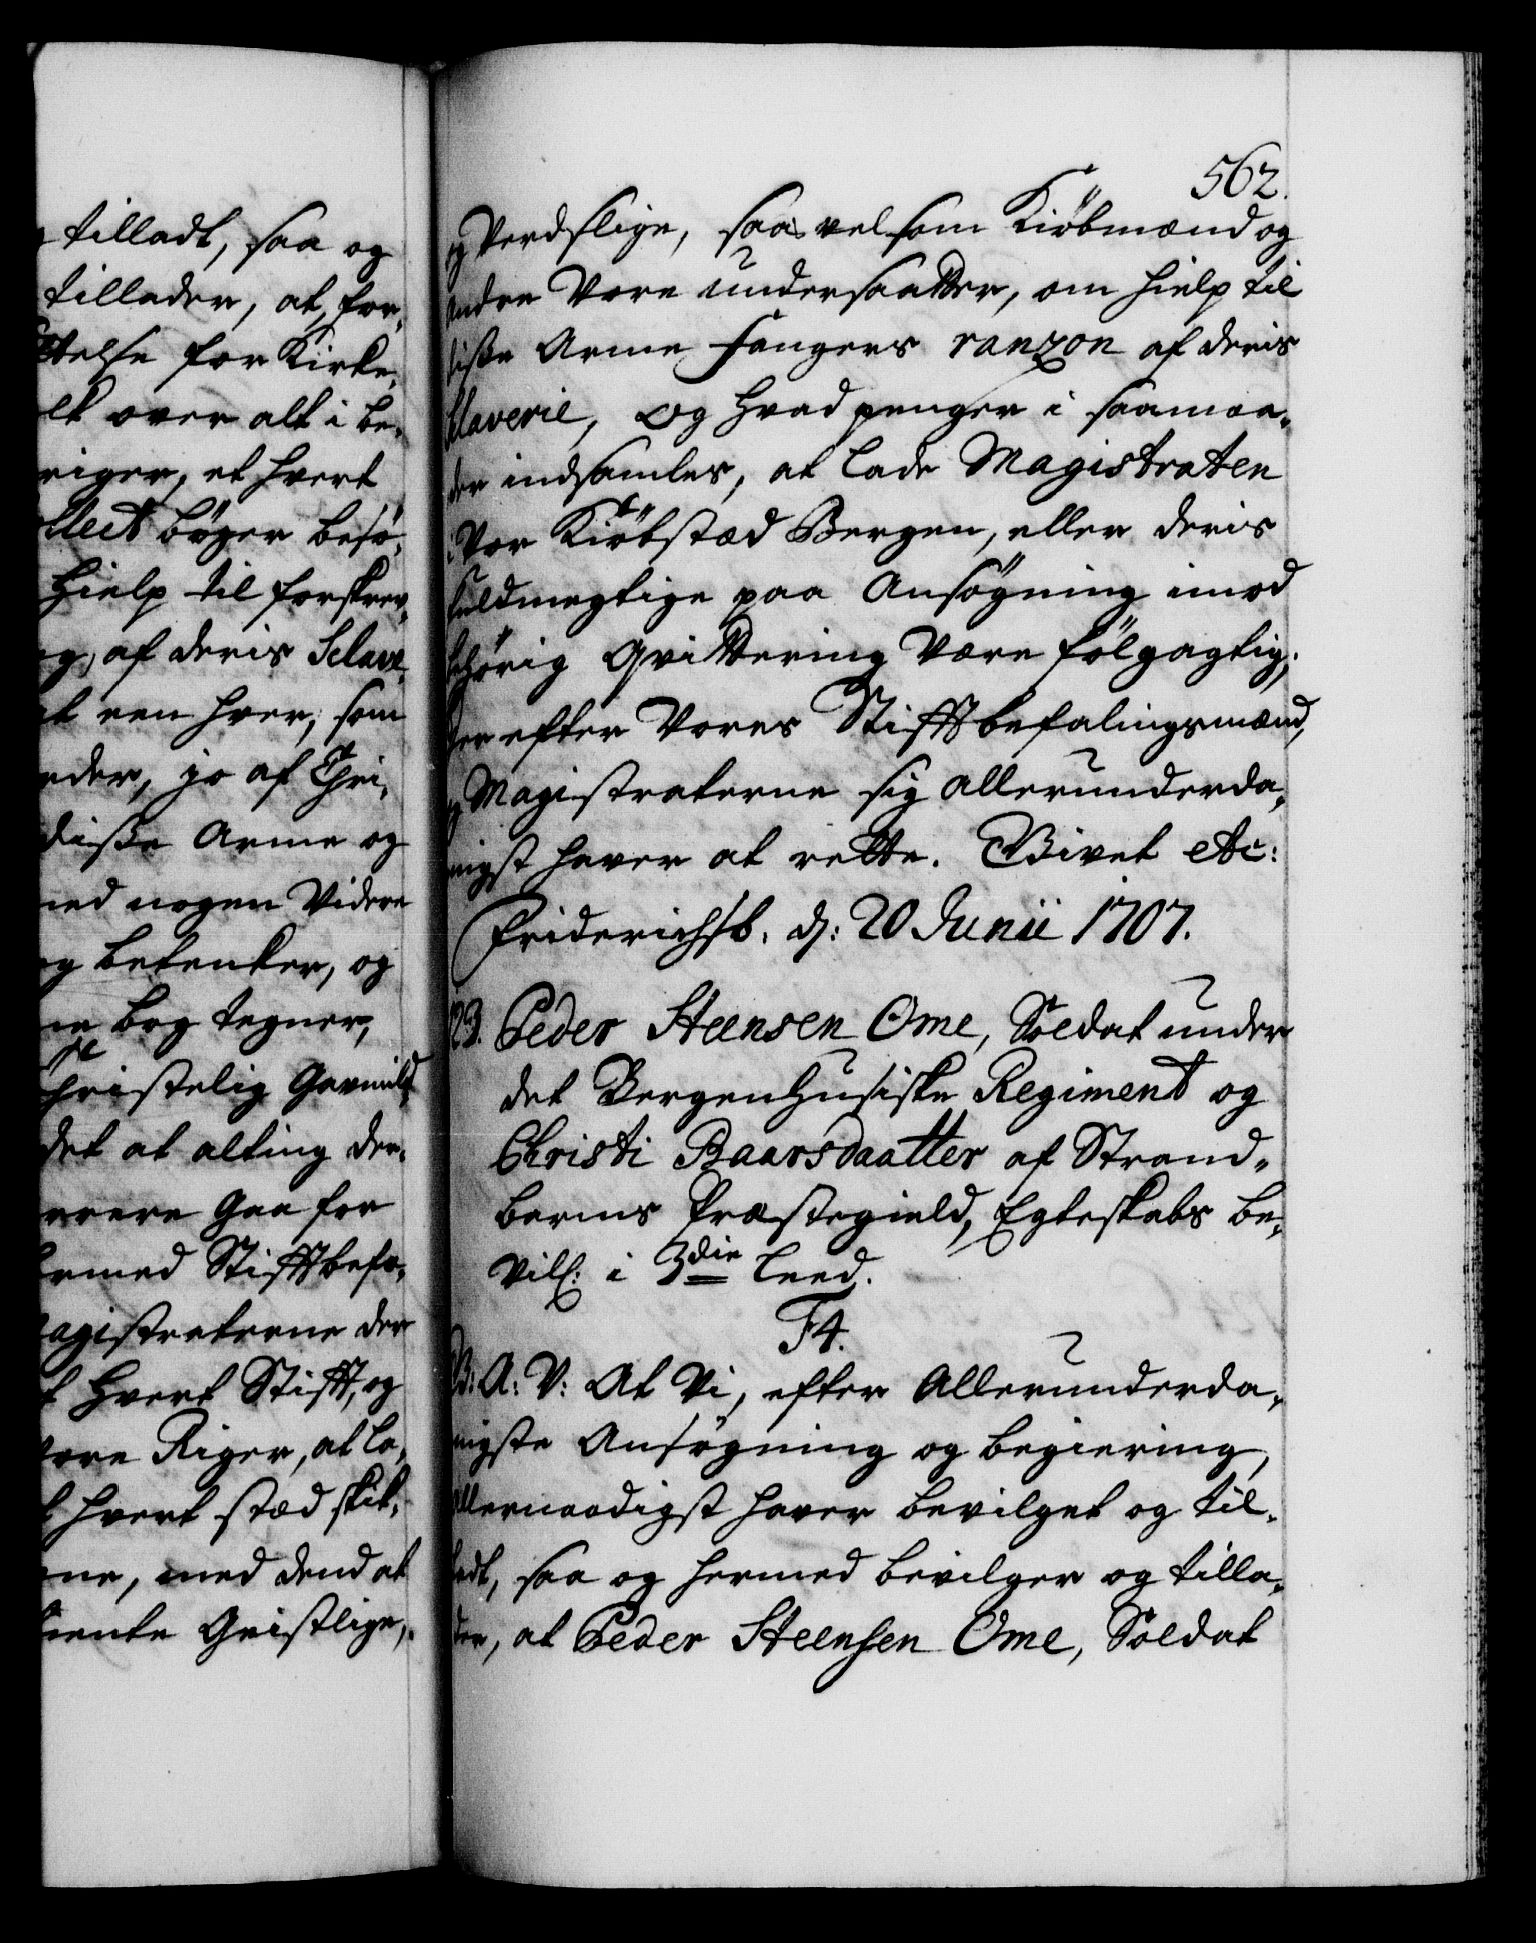 tilladt, saa og
tillader, at for,
telse for Kirke,
lk over alt i be,
riger, et hvert
llect bøger besø,
Hielp til forskrev,
g, af deris Sclave,
t een hver, som
eder, jo af Chri,
disse Arme og
med nogen Videre
g betenker, og
in bog tegner,
Christelig Gavmild,
det at alting der,
rere Gaa for
ermed Stifftbefa,
agistraterne der
t hvert Stifft, og
vore Riger, at la,
t hvert stæd skik,
ne, med dend at
iente Geistlige,
562.
og Verdslige, saavelsom Kiøbmænd og
andre Vore Undersaatter, om hielp til
disse Arme fangers ranzon af deris
Slaverie, og hvad penger i saamaa,
der indsamles, at lade Magistraten
i Vor Kiøbstæd Bergen, eller deris
fuldmegtige paa Ansøgning imod
behørig Qvittering Være følgagtig;
Her efter Vores Stifftbefalingsmænd,
og Magistraterne sig allerunderda,
nigst haver at rette. Givet etc:
Friderichsb. dj: 20 Junii 1707.
123. Peder Steensen Ome, Soldat under
det Bergenhusiske Regiment og
Christi Baarsdaatter af Strand,
barms Præstegield, Egteskabs be,
vill: i 3die Leed.
F4.
G: A: V: At Vi, efter Allerunderda,
nigste Ansøgning og begiering,
Allernaadigst haver bevilget og til,
ladt, saa og hermed bevilger og tilla,
der, at Peder Steensen Ome, Soldat